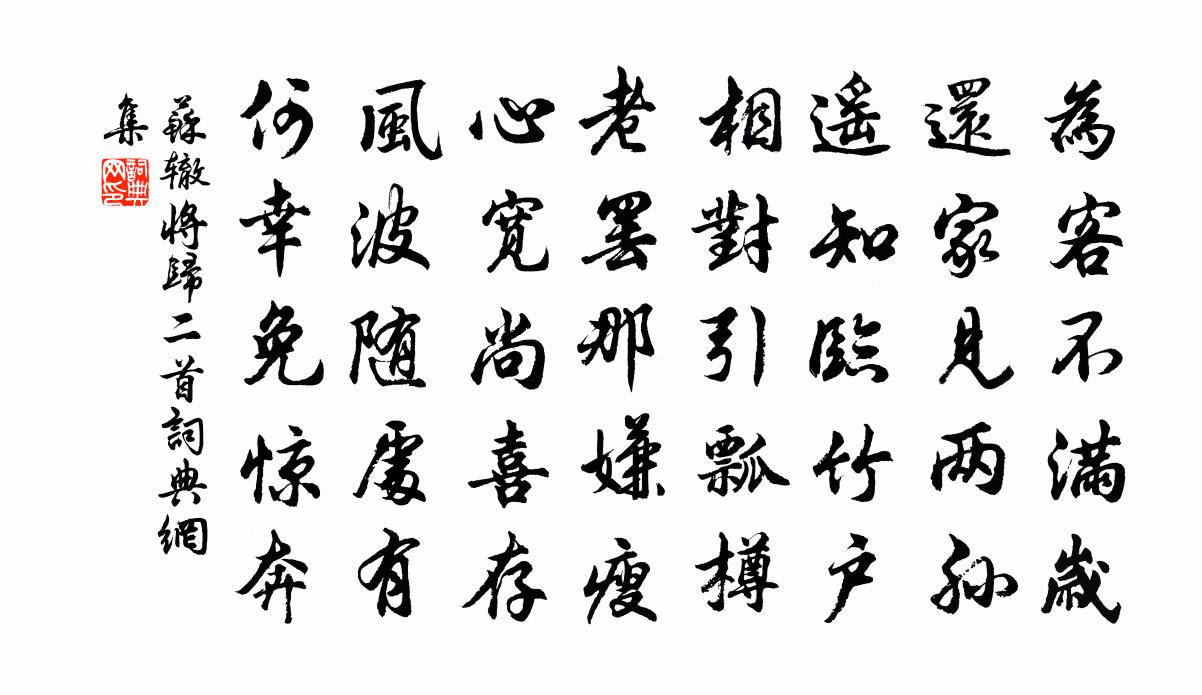 為客不滿歲
還家見两孙
遥知臨竹户
相對引瓢樽
老罢那嫌瘦
心宽尚喜存
風波随處有
何幸免惊奔
蘇辙將歸二首詞典網
集
詞典
网印